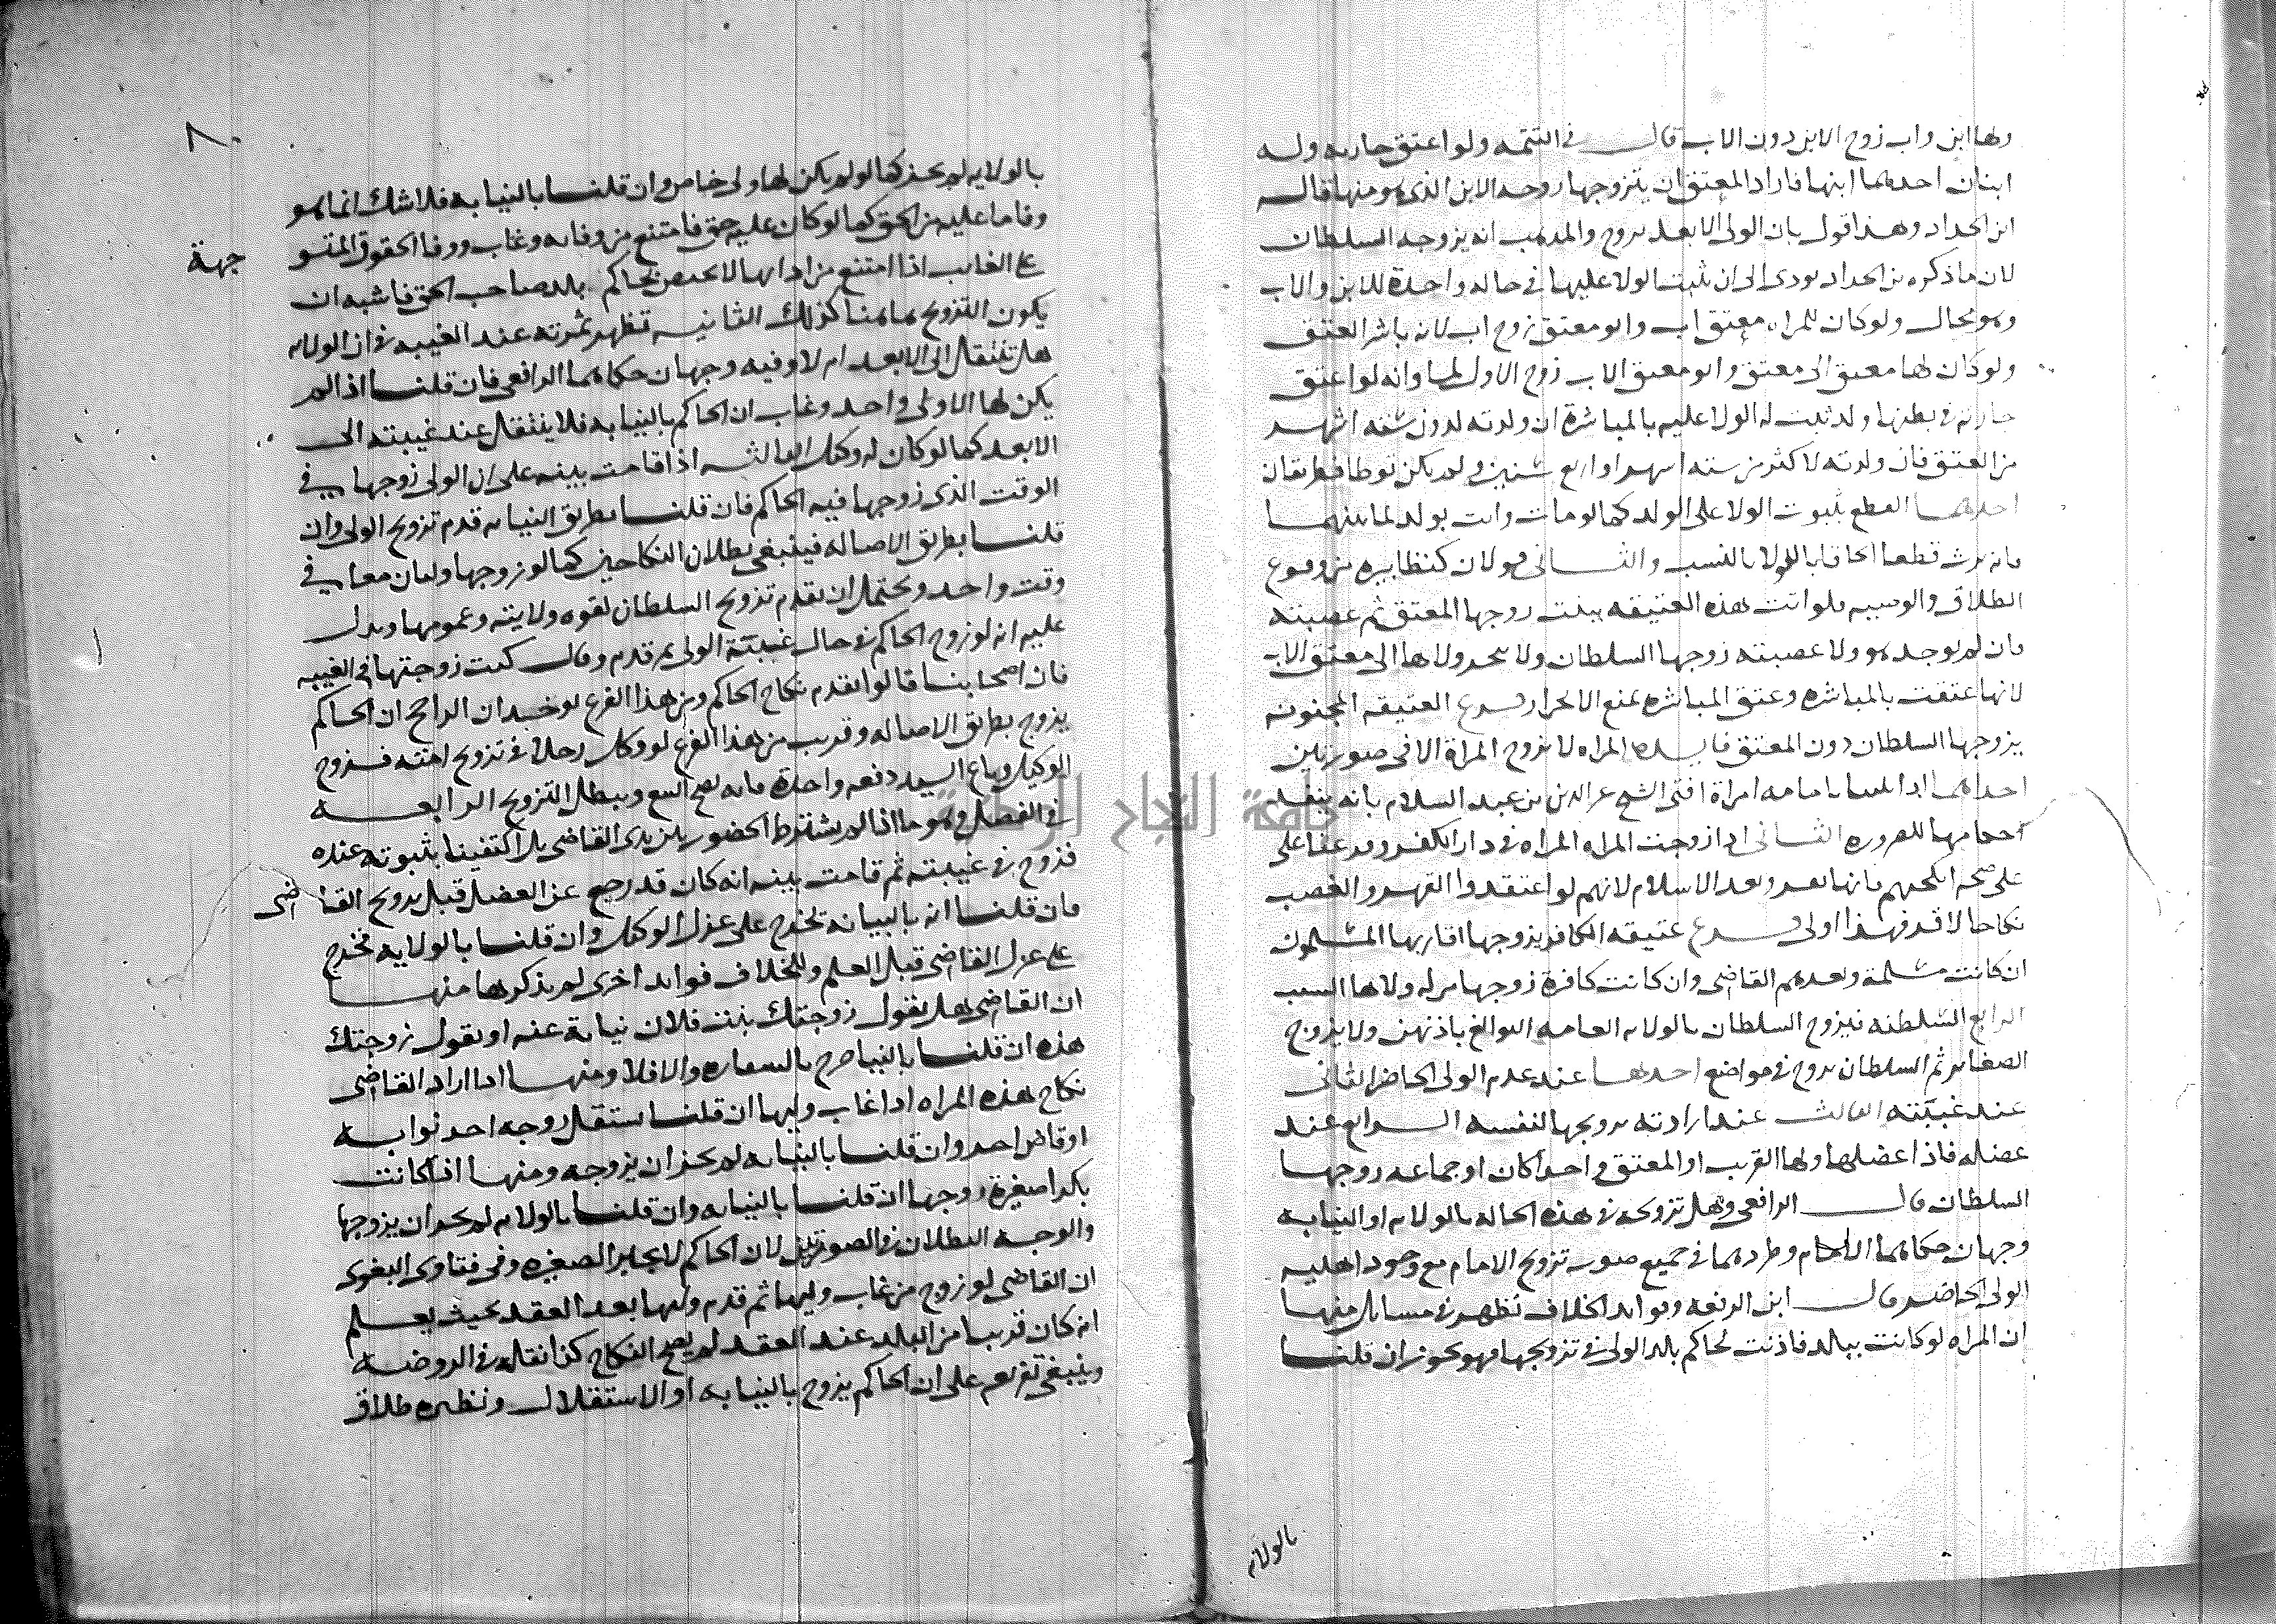 ولها ابن واب زوج الابن دون الاب قال في التتمه ولو اعتق جاريه وله
ابنان احدهما ابنها فاراد المعتق ان يتزوجها زوجه الابن الذي هو منها قاله
ابن الحداد وهذا قول بان الولي الابعد يزوج والمذهب انه يزوجه السلطان
لان ما ذكره بن الحداد يودي الى ان يثبت الولا عليها في حاله واحدة للابن والاب
وهو محال ولو كان للمراه معتق اب وابو معتق زوج اب لانه باشر العتق
ولو كان لها معتق ابي معتق وابو معتق الاب زوج الاول لها وانه لو اعتق
جاريه في بطنها ولد ثبت له الولا عليه بالمباشرة ان ولدته لدون سته اشهر
من العتق فان ولدته لاكثر من سته اشهر او اربع سنين ولم يكن توطا فطريقان
احدهما القطع بثبوت الولا على الولد كما لو مات واتت بولد لما بينهما
فانه يرث قطعا الحاقا بالولا بالنسب والثاني قولان كنظايره من وقوع
الطلاق والوصيه فلو اتت هذه العتيقه ببنت زوجها المعتق ثم عصبته
فان لم يوجد هو ولا عصبته زوجها السلطان ولا ينجر ولاها الى معتق الاب
لانها عتقت بالمباشره وعتق المباشره يمنع الانجرار فرع العتيقه المجنونه
يزوجها السلطان دون المعتق فايده المراه لا تزوج المراة الا في صورتين
احداهما اذا ابتلينا بامامه امراة افتى الشيخ عز الدين بن عبد السلام بانه ينفذ
احكامها للضروره الثاني اذا زوجت المراه المراه في دار الكفر وفرعنا على
على صحه انكحتهم فانها تقر بعد الاسلام لانهم لو اعتقدوا القهر والغصب
نكاحا لاقر فهذا اولى فرع عتيقه الكافر يزوجها اقاربها المسلمون
ان كانت مسلمة وبعدهم القاضي وان كانت كافرة زوجها من له ولاها السبب
الرابع السلطنه فيزوج السلطان بالولايه العامه البوالغ باذنهن ولا يزوج
الصغاير ثم السلطان يزوج في مواضع احدها عند عدم الولي الحاضر الثاني
عند غيبته الثالث عند ارادته تزويجها لنفسه الرابع عند
عضله فاذا عضلها ولها القريب او المعتق واحدا كان او جماعه زوجها
السلطان قال الرافعي وهل تزويجه في هذه الحاله بالولايه او النيابه
وجهان حكاهما الامام وطردهما في جميع صور تزويج الامام مع وجود اهليه
الولي الحاضر قال ابن الرفعه وفوايد الخلاف تظهر في مسايل منها
ان المراه لو كانت ببلد فاذنت لحاكم بلد الولي في تزويجها فهو يجوز ان قلنا
بالولايه
٨٠
بالولايه لم يجز كما لو لم يكن لها ولي خاص وان قلنا بالنيابه فلا شك انما هو
وفا ما عليه من الحق كما لو كان عليه حق فامتنع من وفايه وغاب ووفا الحقوق المتو
جهة
على الغايب اذا امتنع من ادايها لا يختص بحاكم بلد صاحب الحق فاشبه ان
يكون التزويج هاهنا كذلك الثانيه تظهر ثمرته عند الغيبه في ان الولايه
هل تنتقل الى الابعد ام لا وفيه وجهان حكاهما الرافعي فان قلنا اذا لم
يكن لها الا ولي واحد وغاب ان الحاكم بالنيابه فلا ينتقل عند غيبته الى
الابعد كما لو كان له وكيل الثالثه اذا اقامت بينه على ان الولي زوجها في
الوقت الذي زوجها فيه الحاكم فان قلنا بطريق النيابه قدم تزويج الولي وان
قلنا بطريق الاصاله فينبغي بطلان النكاحين كما لو زوجها وليان معا في
وقت واحد ويحتمل ان يقدم تزويج السلطان لقوه ولايته وعمومها ويدل
عليه انه لو زوج الحاكم في حال غيبة الولي ثم قدم وقال كنت زوجتها في الغيبه
فان اصحابنا قالوا يقدم نكاح الحاكم ومن هذا الفرع يوخذ ان الراجح ان الحاكم
يزوج بطريق الاصاله وقريب من هذا الفرع لو وكل رجلا في تزويج امته فزوج
الوكيل وباع السيد دفعه واحدة فانه يصح البيع ويبطل التزويج الرابعه
في الفصل وهو ما اذا لم يشترط الحضور بين يدي القاضي بل اكتفينا بثبوته عنده
فزوج في غيبته ثم قامت بينه انه كان قد رجع عن العضل قبل تزويج القاضي
فان قلنا انه بالنيابه تخرج على عزل الوكيل وان قلنا بالولايه فتخرج
على عزل القاضي قبل العلم وللخلاف فوايد اخرى لم يذكرها منها
ان القاضي هل يقول زوجتك بنت فلان نيابة عنه او يقول زوجتك
هذه ان قلنا بالنيابه صرح بالسفاره والا فلا ومنها اذا اراد القاضي
نكاح هذه المراه اذا غاب وليها ان قلنا يستقل زوجه احد نوابه
او قاض اخر وان قلنا بالنيابه لم يجز ان يزوجه ومنها اذا كانت
بكرا صغيرة زوجها ان قلنا بالنيابه وان قلنا بالولايه لم يجز ان يزوجها
والوجه البطلان في الصورتين لان الحاكم لا يجبر الصغيره وفي فتاوى البغوي
ان القاضي لو زوج من غاب وليها ثم قدم وليها بعد العقد بحيث يعلم
انه كان قريبا من البلد عند العقد لم يصح النكاح كذا نقله في الروضه
وينبغي تفريعه على ان الحاكم يزوج بالنيابه او الاستقلال ونظيره طلاق